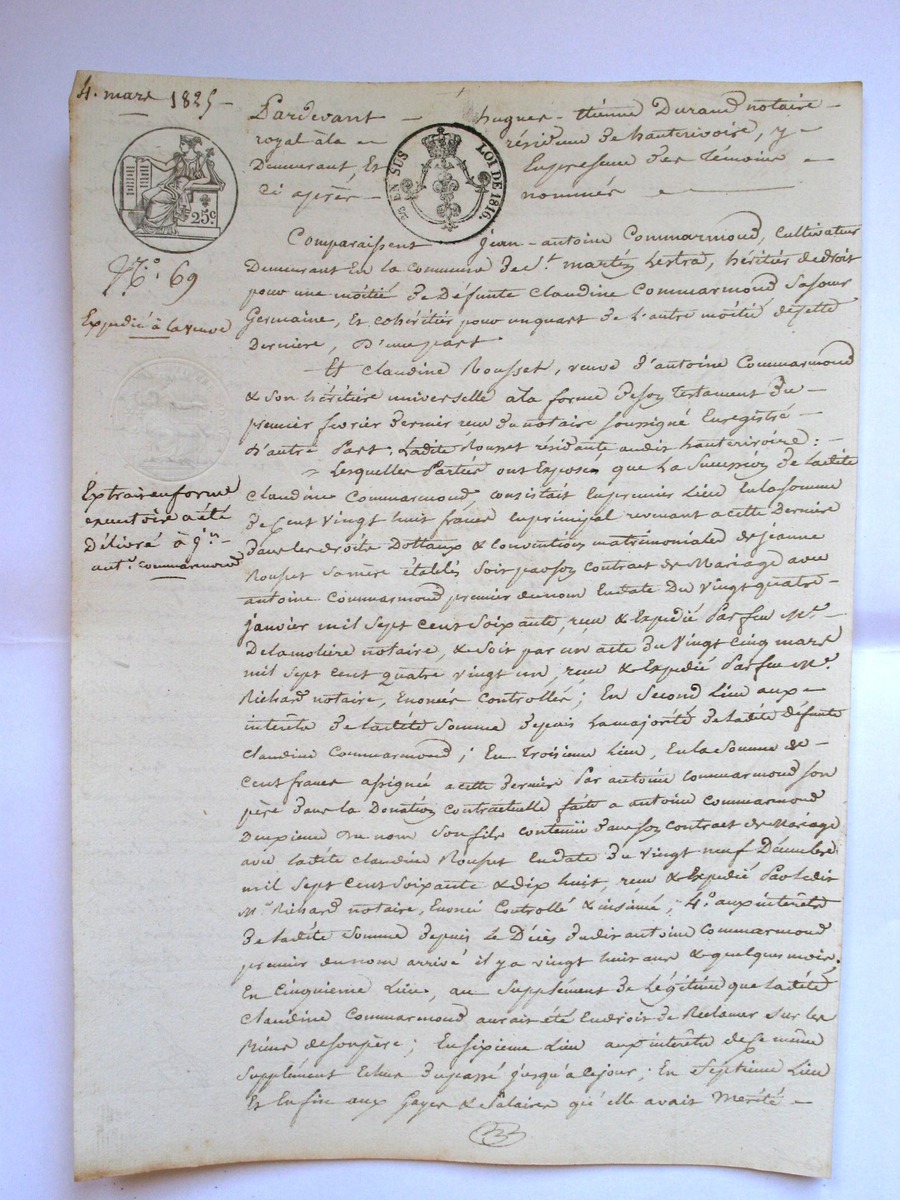 4. mars 1825 -
Pardevant - hugues - étienne Durand notaire -
royal à la - résidence de hauterivoire, y -
Demeurant, Et - En présence des témoins -
Ci après - nommés -
25 EN SUS LOI DE 1816.
25c.
N.° 69
Expedié à la veuve
Comparaissent jean - antoine Commarmond, cultivateur
Demeurant En la Commune de St. martin Lestra, héritier de droit
pour une moitié de Défunte Claudine Commarmond Sa sœur
Germaine, Et cohéritier pour un quart de l'autre moitié de cette
Dernière, D'une part.
Et Claudine Rousset, veuve d'antoine Commarmond
& Son héritière universelle à la forme de son Testament du -
premier février dernier reçu du notaire Soussigné Enregistré -
D'autre Part, Ladite Rousset résidante audit hauterivoire : -
Lesquelles Parties ont Exposé que La Succession de ladite
Claudine Commarmond, consistait En premier Lieu En la somme
de Cent vingt huit francs En principal revenant a cette Dernière
Dans les droits Dottaux & Conventions matrimoniales de jeanne
Rousset Sa mère établis Soit par son Contrat de Mariage avec
antoine Commarmond premier du nom En date Du vingt quatre -
janvier mil Sept Cent Soixante, reçu & Expedié Par feu Me.
Delamolière notaire, & Soit par un acte du vingt Cinq mars
mil Sept cent quatre vingt un, reçu & Expedié Par feu Me.
Richard notaire, Enoncés Controllés ; En Second Lieu aux -
intérêts de ladite Somme depuis La majorité de ladite défunte
Claudine Commarmond ; En Troisieme Lieu, En la Somme de -
Cent francs assigné a cette dernière Par antoine Commarmond son
père dans la Donation Contractuelle faite a antoine Commarmond
Deuxieme du nom Son fils contenüe dans son Contrat de Mariage
avec ladite Claudine Rousset En date du vingt neuf Décembre
mil Sept Cent Soixante & dix huit, reçu & Expedié Par ledit
Me. Richard notaire, Enoncé Controllé & insinué, 4.° aux intérêts
de ladite Somme depuis Le Décès dudit antoine Commarmond
premier du nom arrivé il y a vingt huit ans & quelques mois.
En Cinquieme Lieu, au Supplément de Légitime que ladite
Claudine Commarmond aurait été En droit de Réclamer sur les
Biens de son père ; En sixieme Lieu aux intérêts de Ce même
Supplément Echus du passé jusqu'a ce jour ; En Septieme Lieu
Et Enfin aux Gages & Salaires qu'elle avait Mérité -
Extrait en forme
executoire a été
Délivré à jn. -
ant.e commarmond